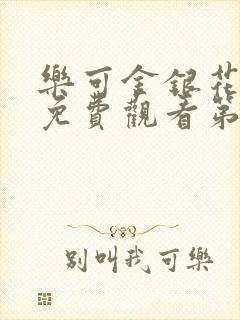 樂可金銀花
免費觀看第
別叫我可樂